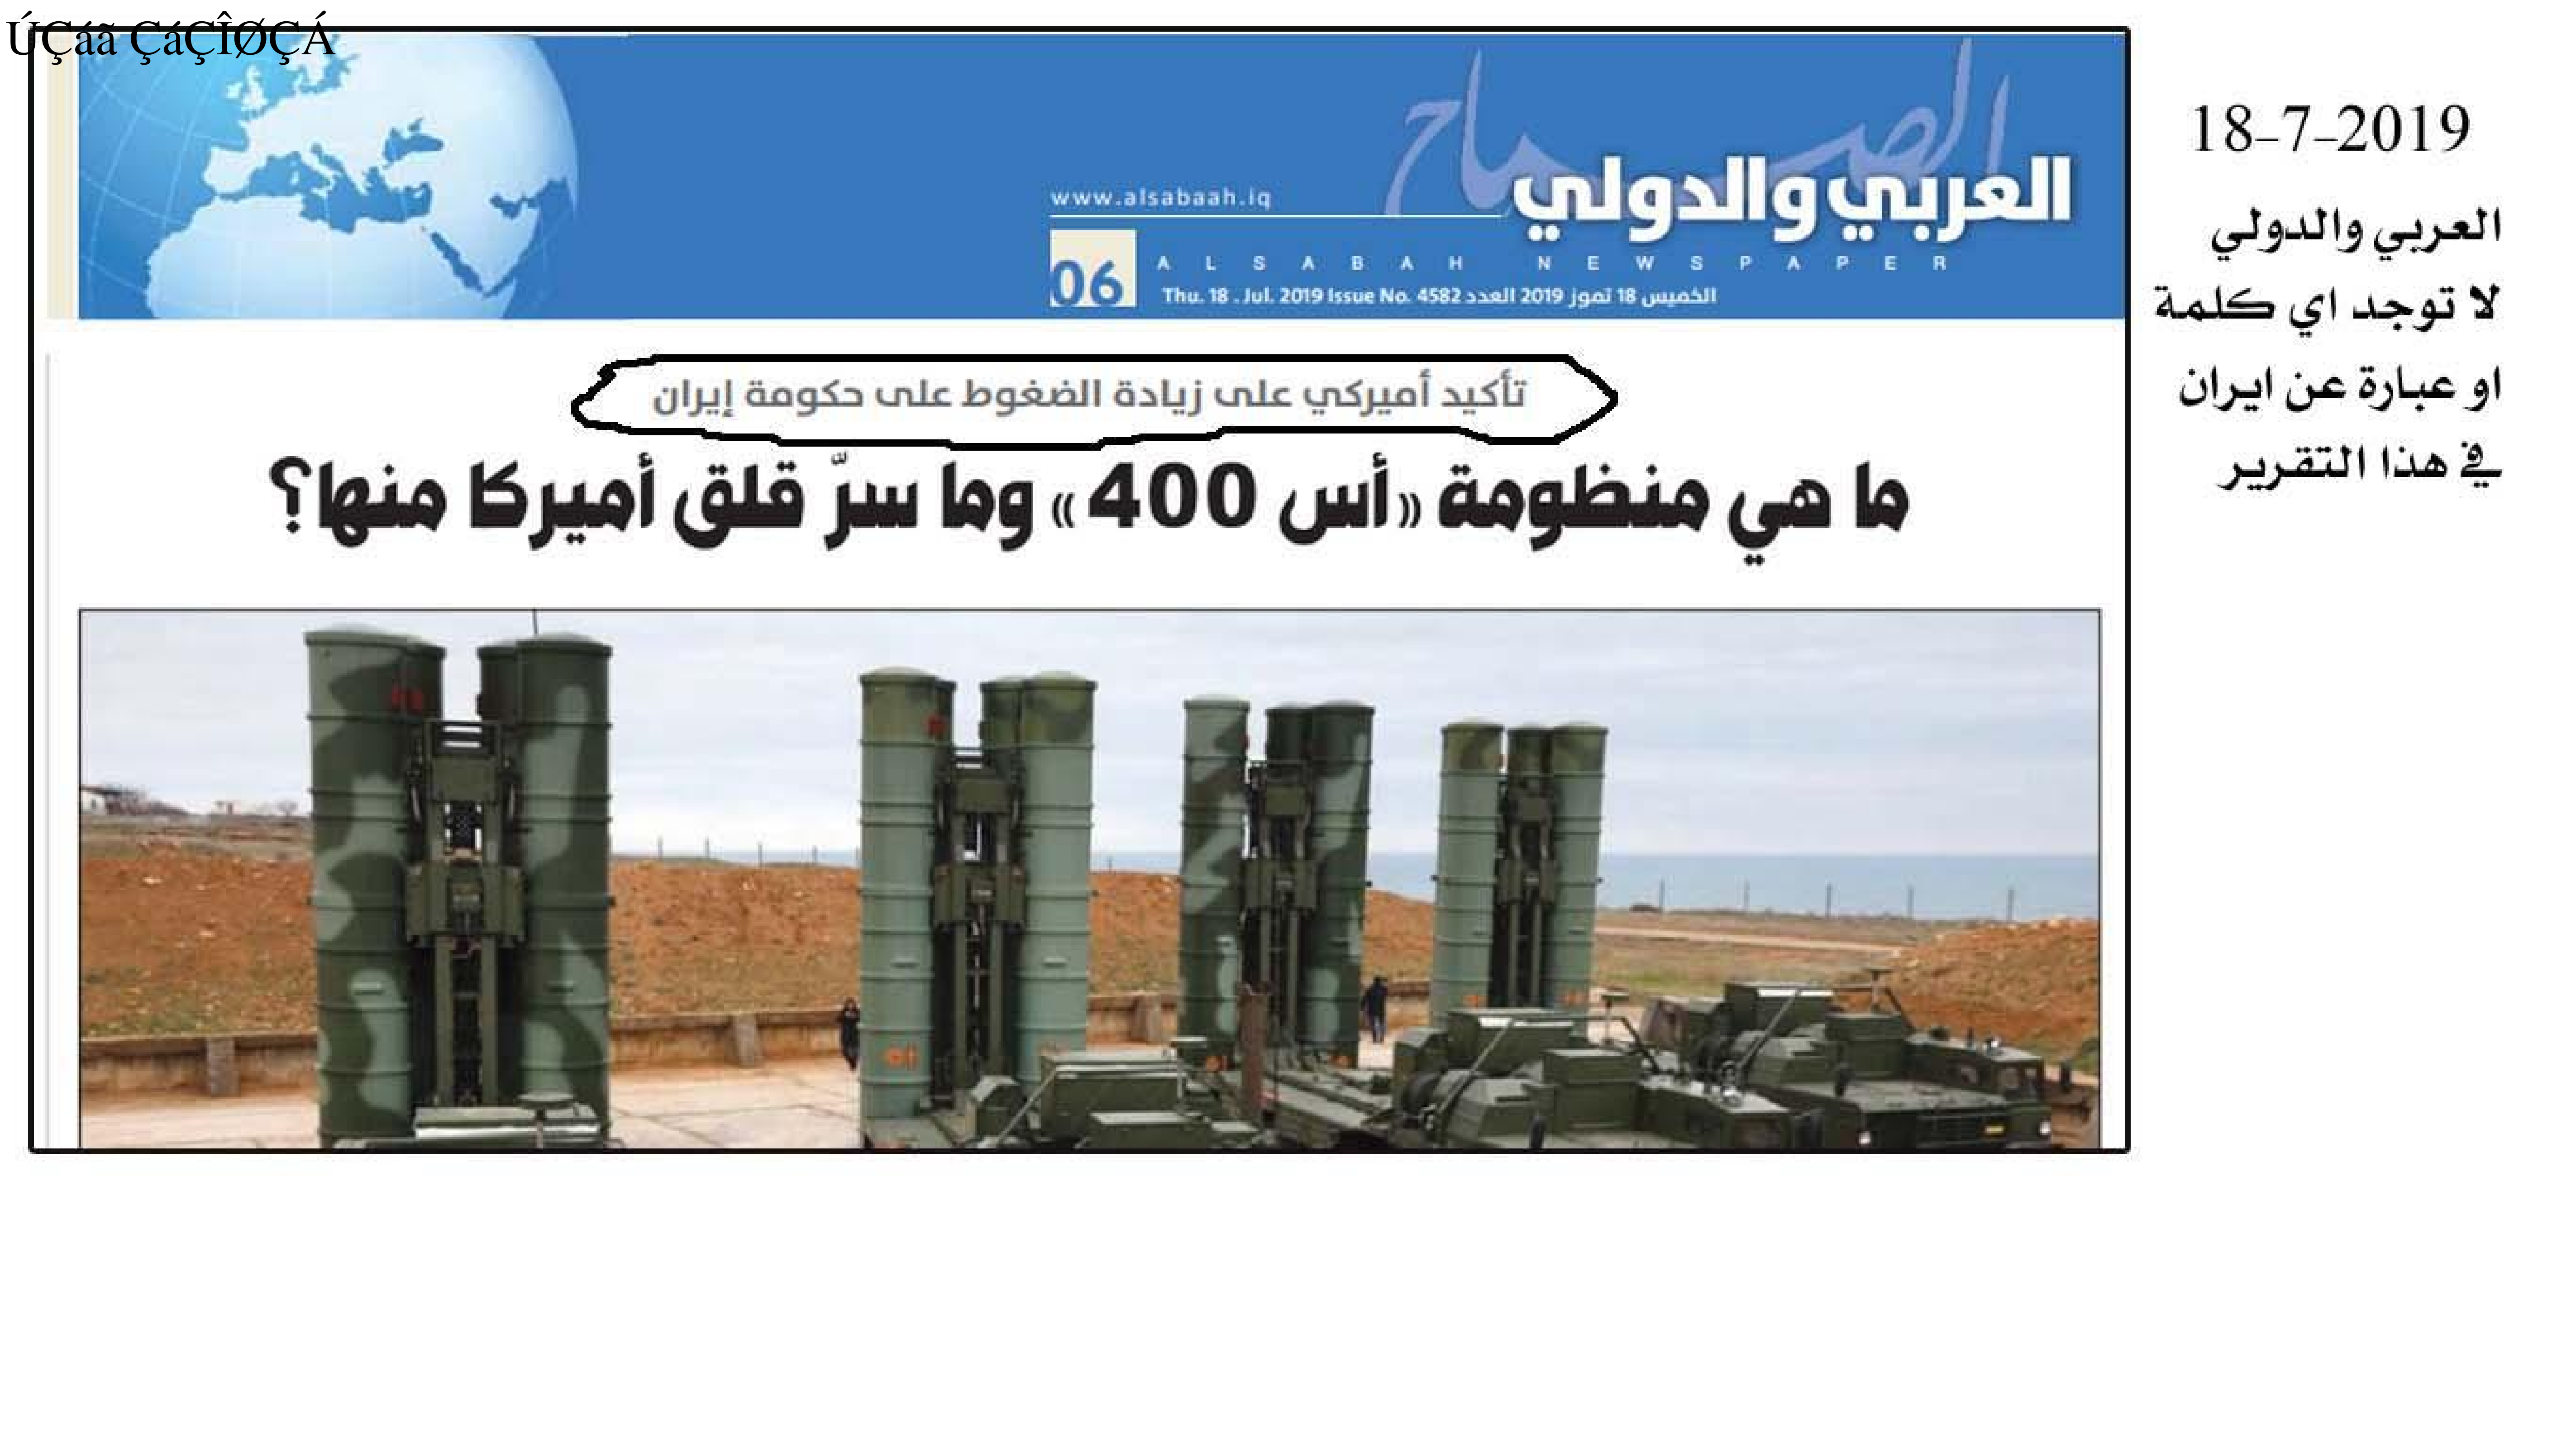 ÚÇáã ÇáÇÎØÇÁ
الصباح
العربي والدولي
www.alsabaah.iq
06
ALSABAH NEWSPAPER
Thu. 18 . Jul. 2019 Issue No. 4582 الخميس 18 تموز 2019 العدد
تأكيد أميركي على زيادة الضغوط على حكومة إيران
ما هي منظومة «أس 400» وما سرّ قلق أميركا منها؟
18-7-2019
العربي والدولي
لا توجد اي كلمة
او عبارة عن ايران
في هذا التقرير